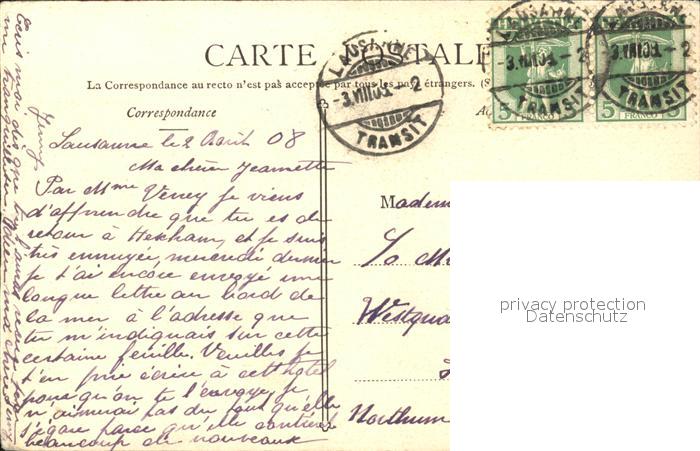 CARTE POSTALE
La Correspondance au recto n'est pas acceptée par tous les pays étrangers. (S
Correspondance
LAUSANNE
-3.VIII.08.-2
TRANSIT
LAUSANNE
-3.VIII.08.-2
TRANSIT
-3.VIII.08.-2
TRANSIT
5 FRANCO 5
5 FRANCO 5
Lausanne le 2 Août 08
Ma chère Jeannette
Par Mme Veney je viens
d'apprendre que tu es de
retour à Hexham, et je suis
très ennuyée, mercredi dernier
je t'ai encore envoyé une
longue lettre au bord de
la mer à l'adresse que
tu m'indiquais sur cette
certaine feuille. Veuilles je
t'en prie écrire à cet hôtel
pour qu'on te l'envoye, je
n'aimerai pas du tout qu'elle
s'égare parce qu'elle contient
beaucoup de nouveaux
Ecris moi dès que tu l'auras
Jenny
Madem
Westqua
Northum
privacy protection
Datenschutz